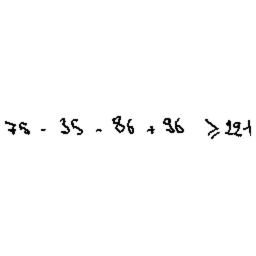 75 - 35 - 86 + 96 ⩾ 221